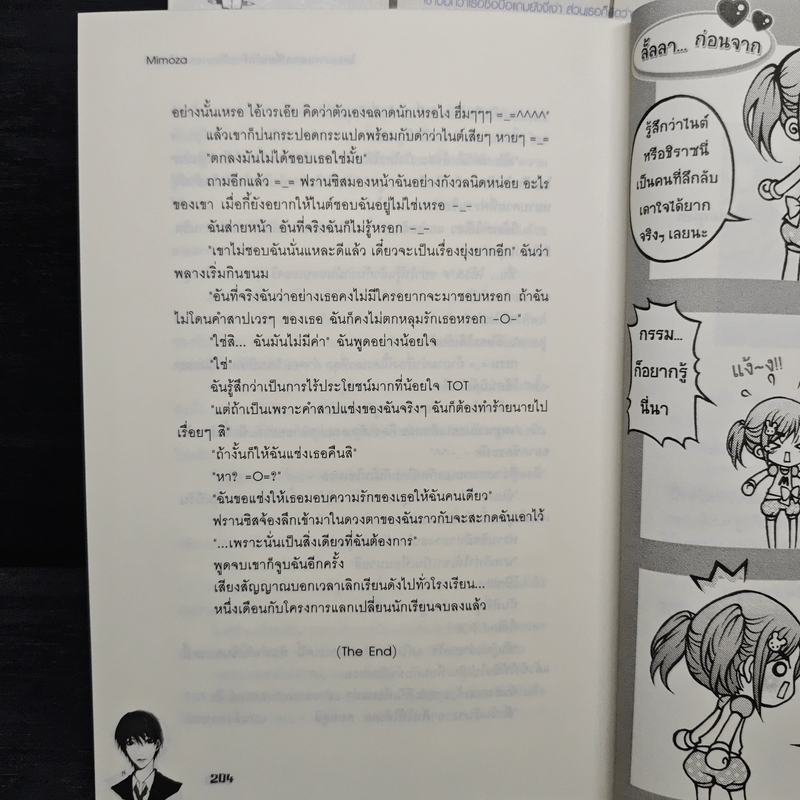 เขาบอกว่าเธอชื่อบ๊องแถมยังขี้เง่า ส่วนเธอก็
Mimoza
อย่างนั้นเหรอ ไอ้เวรเอ๊ย คิดว่าตัวเองฉลาดนักเหรอไง ฮึ่มๆๆๆ =_=^^^^"
แล้วเขาก็บ่นกระปอดกระแปดพร้อมกับด่าว่าไนต์เสียๆ หายๆ =_=
"ตกลงมันไม่ได้ชอบเธอใช่มั้ย"
ถามอีกแล้ว =_= ฟรานซิสมองหน้าฉันอย่างกังวลนิดหน่อย อะไร
ของเขา เมื่อกี้ยังอยากให้ไนต์ชอบฉันอยู่ไม่ใช่เหรอ -_-
ฉันส่ายหน้า อันที่จริงฉันก็ไม่รู้หรอก -_-
"เขาไม่ชอบฉันนั่นแหละดีแล้ว เดี๋ยวจะเป็นเรื่องยุ่งยากอีก" ฉันว่า
พลางเริ่มกินขนม
"อันที่จริงฉันว่าอย่างเธอคงไม่มีใครอยากจะมาชอบหรอก ถ้าฉัน
ไม่โดนคำสาปเวรๆ ของเธอ ฉันก็คงไม่ตกหลุมรักเธอหรอก -O-"
"ใช่สิ... ฉันมันไม่มีค่า" ฉันพูดอย่างน้อยใจ
"ใช่"
ฉันรู้สึกว่าเป็นการไร้ประโยชน์มากที่น้อยใจ TOT
"แต่ถ้าเป็นเพราะคำสาปแช่งของฉันจริงๆ ฉันก็ต้องทำร้ายนายไป
เรื่อยๆ สิ"
"ถ้างั้นก็ให้ฉันแช่งเธอคืนสิ"
"หา? =O=?"
"ฉันขอแช่งให้เธอมอบความรักของเธอให้ฉันคนเดียว"
ฟรานซิสจ้องลึกเข้ามาในดวงตาของฉันราวกับจะสะกดฉันเอาไว้
"...เพราะนั่นเป็นสิ่งเดียวที่ฉันต้องการ"
พูดจบเขาก็จูบฉันอีกครั้ง
เสียงสัญญาณบอกเวลาเลิกเรียนดังไปทั่วโรงเรียน...
หนึ่งเดือนกับโครงการแลกเปลี่ยนนักเรียนจบลงแล้ว
(The End)
204
ลั้ลลา... ก่อนจาก
รู้สึกว่าไนต์
หรือชิราซนี่
เป็นคนที่ลึกลับ
เดาใจได้ยาก
จริงๆ เลยนะ
กรรม...
ก็อยากรู้
นี่นา
แง้~งู!!